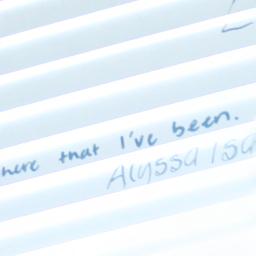 here that I've been.
Alyssa Isa